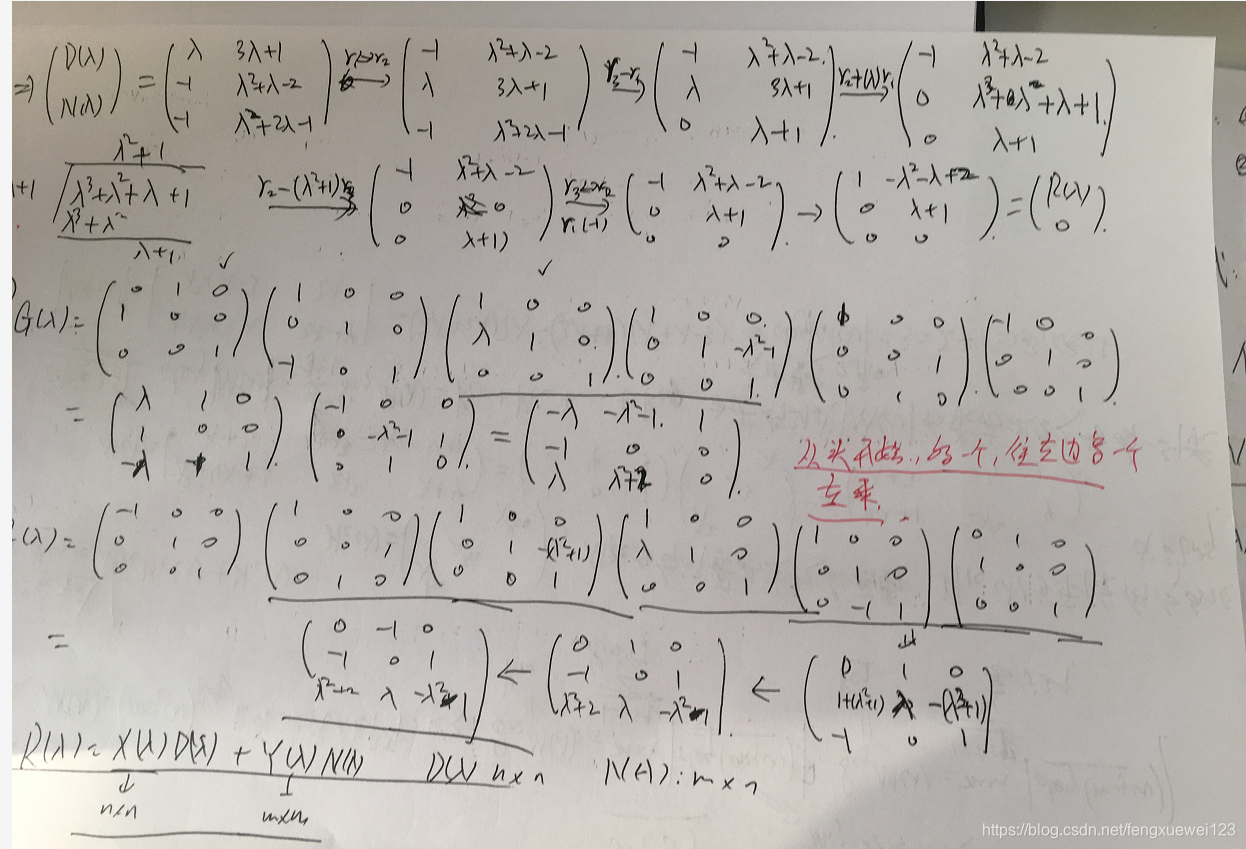 ⇒ (D(λ) ; N(λ)) = (λ 3λ+1 ; -1 λ²+λ-2 ; -1 λ²+2λ-1) r₁↔r₂ → (-1 λ²+λ-2 ; λ 3λ+1 ; -1 λ²+2λ-1) r₃-r₁ → (-1 λ²+λ-2 ; λ 3λ+1 ; 0 λ+1) r₂+(λ)r₁ → (-1 λ²+λ-2 ; 0 λ³+λ²+λ+1 ; 0 λ+1)
λ²+1
+1 λ³+λ²+λ+1
λ³+λ²
λ+1
r₂-(λ²+1)r₃ → (-1 λ²+λ-2 ; 0 0 ; 0 λ+1) r₃↔r₂ r₁(-1) → (-1 λ²+λ-2 ; 0 λ+1 ; 0 0) → (1 -λ²-λ+2 ; 0 λ+1 ; 0 0) = (R(λ) ; 0).
G(λ)= (0 1 0 ; 1 0 0 ; 0 0 1) (1 0 0 ; 0 1 0 ; -1 0 1) (1 0 0 ; λ 1 0 ; 0 0 1) (1 0 0 ; 0 1 -λ²-1 ; 0 0 1) (1 0 0 ; 0 0 1 ; 0 1 0) (-1 0 0 ; 0 1 0 ; 0 0 1)
= (λ 1 0 ; 1 0 0 ; 1) (-1 0 0 ; 0 -λ²-1 1 ; 0 1 0) = (-λ -λ²-1 1 ; -1 0 0 ; λ λ²+2 0)
从头开始，的一个，往左边每一个
左乘.
(λ)= (-1 0 0 ; 0 1 0 ; 0 0 1) (1 0 0 ; 0 0 1 ; 0 1 0) (1 0 0 ; 0 1 -(λ²+1) ; 0 0 1) (1 0 0 ; λ 1 0 ; 0 0 1) (1 0 0 ; 0 1 0 ; 0 -1 1) (0 1 0 ; 1 0 0 ; 0 0 1)
= (0 -1 0 ; -1 0 1 ; λ²+2 λ -λ²-1) ← (0 1 0 ; -1 0 1 ; λ²+2 λ -λ²-1) ← (0 1 0 ; 1+(λ²+1) λ -(λ²+1) ; -1 0 1)
R(λ)= X(λ)D(λ) + Y(λ)N(λ) D(λ) n×n N(λ): m×n
n×n m×n
https://blog.csdn.net/fengxuewei123